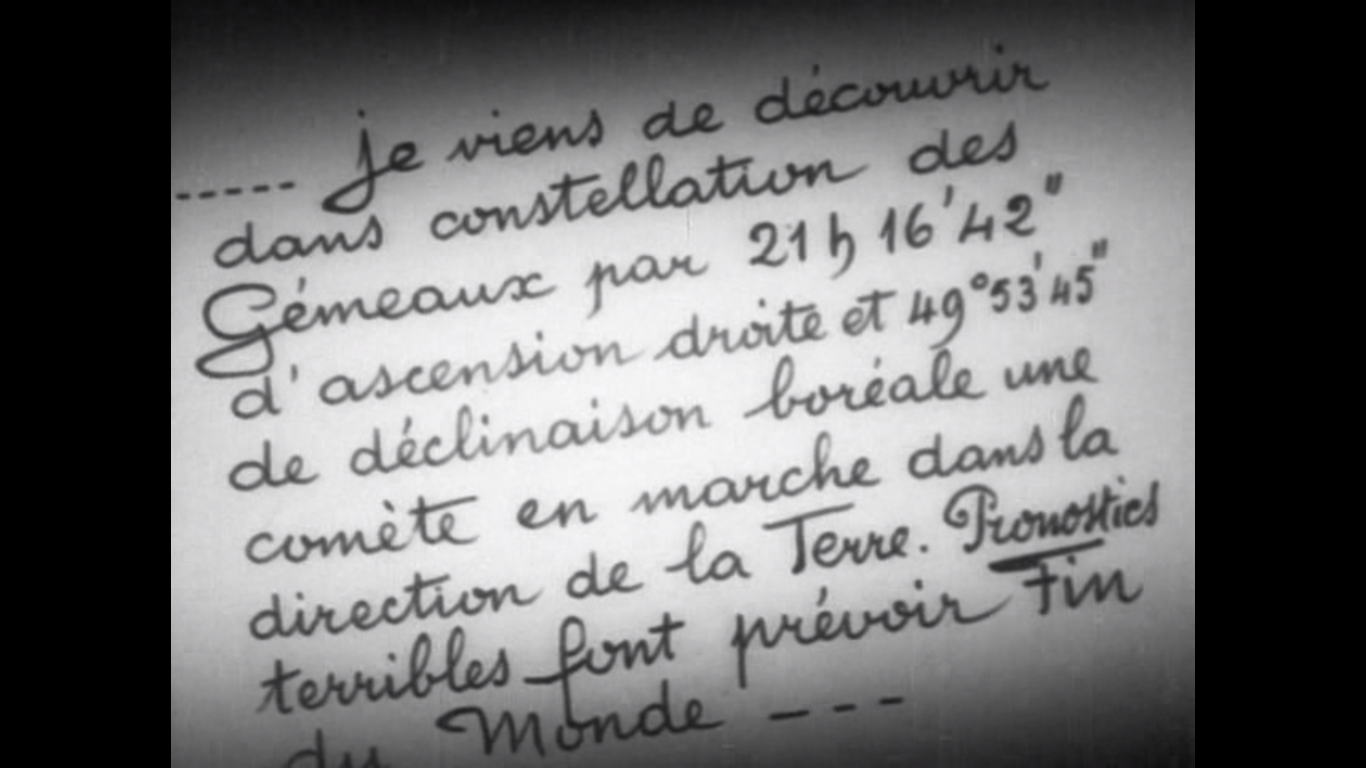 ..... Je viens de découvrir
dans constellation des
Gémeaux par 21h 16'42"
d'ascension droite et 49°53'45"
de déclinaison boréale une
comète en marche dans la
direction de la Terre. Pronostics
terribles font prévoir Fin
du Monde ---